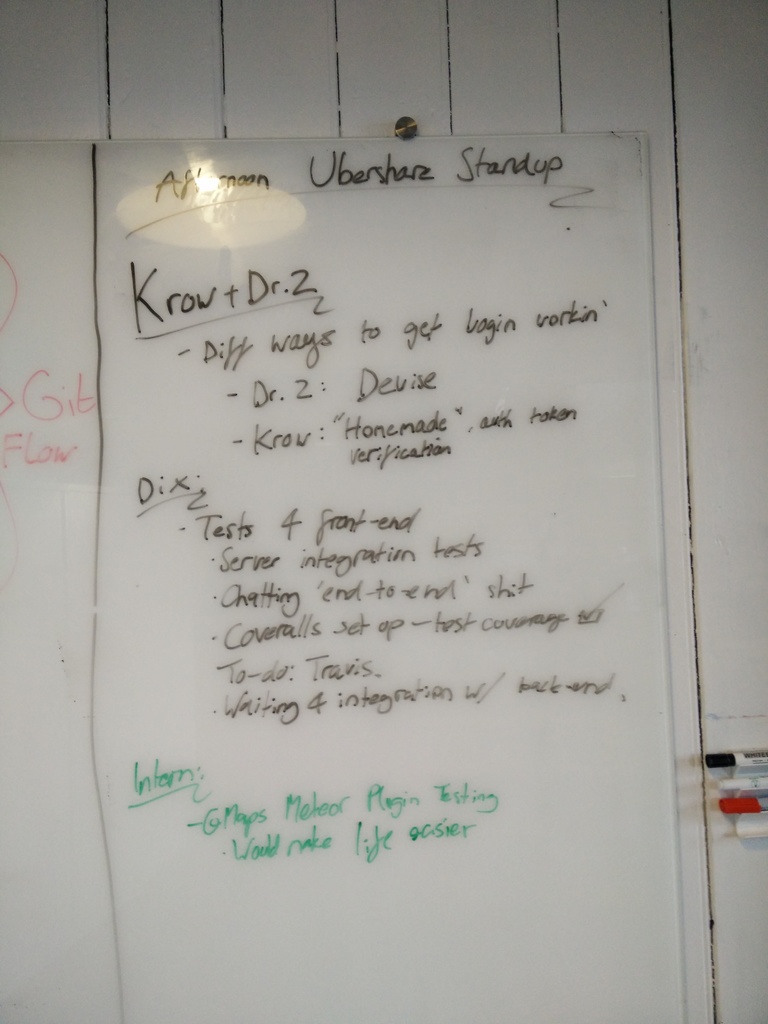 Afternoon Ubershare Standup
Krow + Dr. 2
- Diff ways to get login workin'
- Dr. 2: Devise
- Krow: "Homemade", auth token
verification
Dix:
- Tests 4 front-end
· Server integration tests
· Chatting 'end-to-end' shit
· Coveralls set up - test coverage
To-do: Travis.
· Waiting 4 integration w/ back-end.
Intern:
- GMaps Meteor Plugin Testing
· Would make life easier
> Git
Flow